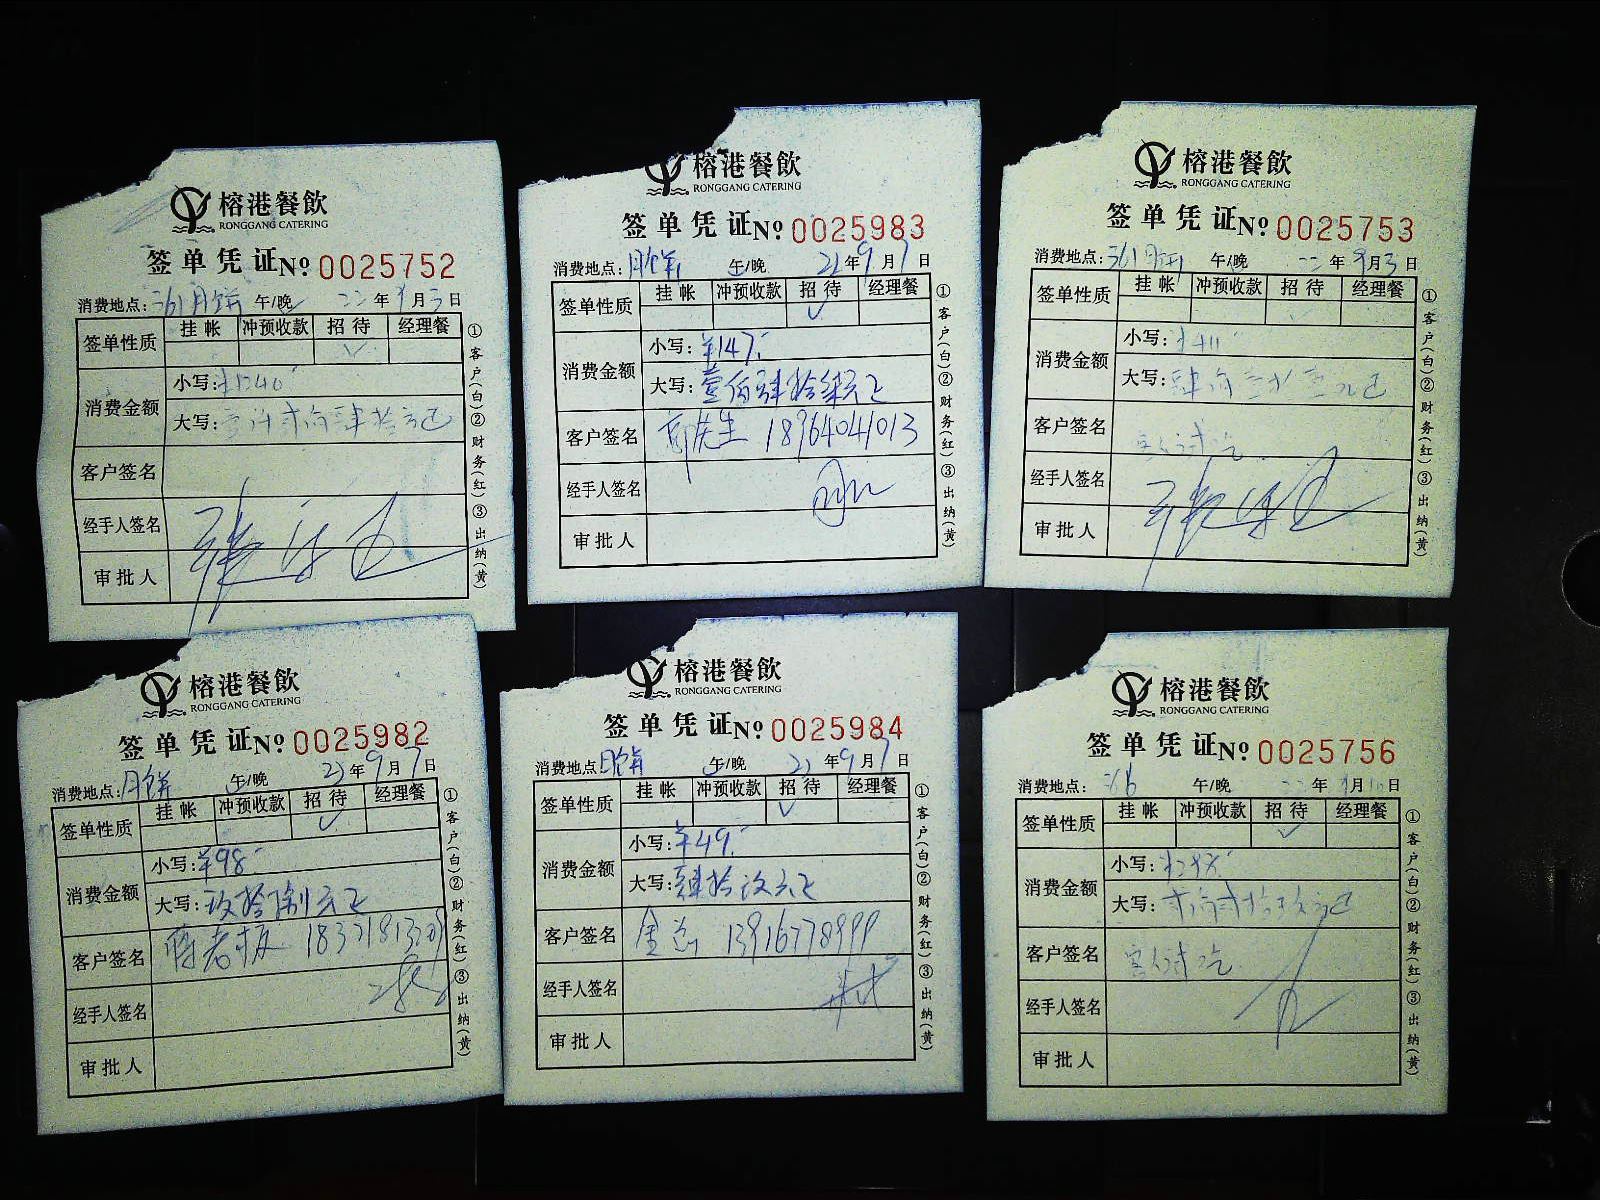 榕港餐飲
RONGGANG CATERING
签单凭证№ 0025752
消费地点：361月饼 午/晚 22年9月3日
签单性质 挂帐 冲预收款 招待 经理餐
✓
消费金额 小写：¥1240
大写：壹仟贰佰肆拾元正
客户签名
经手人签名
审批人
①客户(白)②财务(红)③出纳(黄)
榕港餐飲
RONGGANG CATERING
签单凭证№ 0025983
消费地点：月饼 午/晚 22年9月7日
签单性质 挂帐 冲预收款 招待 经理餐
✓
消费金额 小写：¥147.-
大写：壹佰肆拾柒元正
客户签名 先生 18964041013
经手人签名
审批人
①客户(白)②财务(红)③出纳(黄)
榕港餐飲
RONGGANG CATERING
签单凭证№ 0025753
消费地点：361月饼 午/晚 22年9月3日
签单性质 挂帐 冲预收款 招待 经理餐
✓
消费金额 小写：
大写：肆佰
客户签名 客人试吃
经手人签名
审批人
①客户(白)②财务(红)③出纳(黄)
榕港餐飲
RONGGANG CATERING
签单凭证№ 0025982
消费地点：月饼 午/晚 22年9月7日
签单性质 挂帐 冲预收款 招待 经理餐
✓
消费金额 小写：¥98.-
大写：玖拾捌元正
客户签名 老板
经手人签名
审批人
①客户(白)②财务(红)③出纳(黄)
榕港餐飲
RONGGANG CATERING
签单凭证№ 0025984
消费地点：月饼 午/晚 22年9月7日
签单性质 挂帐 冲预收款 招待 经理餐
✓
消费金额 小写：¥49.-
大写：肆拾玖元正
客户签名 金总 13916778999
经手人签名
审批人
①客户(白)②财务(红)③出纳(黄)
榕港餐飲
RONGGANG CATERING
签单凭证№ 0025756
消费地点： 午/晚 22年9月10日
签单性质 挂帐 冲预收款 招待 经理餐
✓
消费金额 小写：
大写：贰佰贰拾玖元正
客户签名 客人试吃
经手人签名
审批人
①客户(白)②财务(红)③出纳(黄)